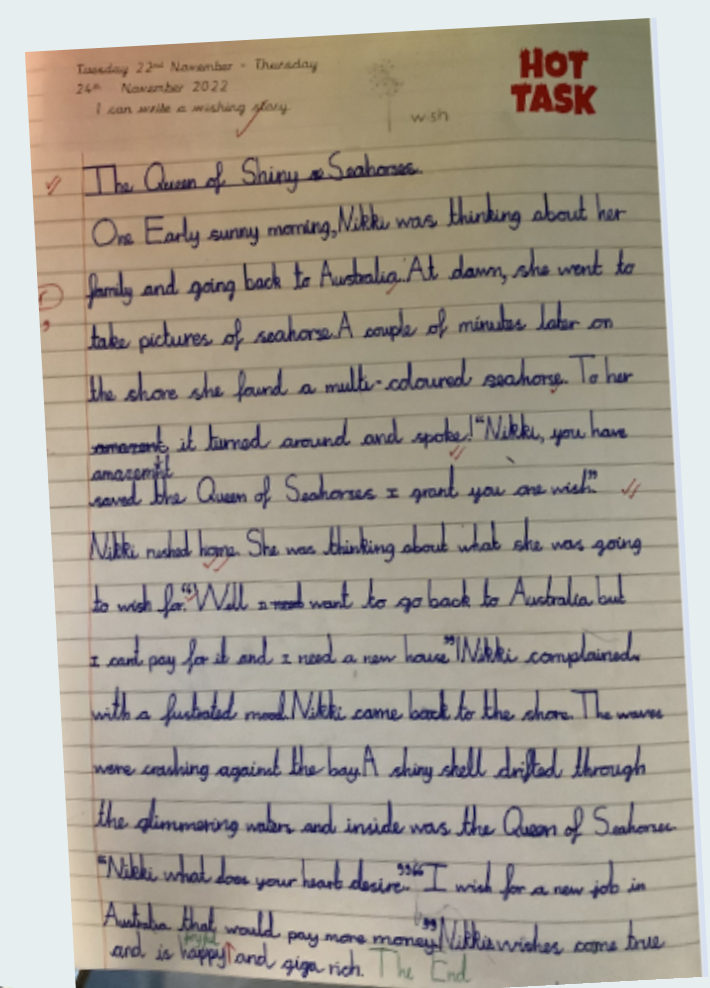 Tuesday 22nd November - Thursday
HOT
TASK
24th November 2022
I can write a wishing story.
wish
The Queen of Shiny Seahorses.
One Early sunny morning, Nikki was thinking about her
family and going back to Australia. At dawn, she went to
take pictures of seahorse. A couple of minutes later on
the shore she found a multi-coloured seahorse. To her
it turned around and spoke! "Nikki, you have
amazemnt
saved the Queen of Seahorses I grant you one wish."
Nikki rushed home. She was thinking about what she was going
to wish for. "Well I need want to go back to Australia but
I cant pay for it and I need a new house" Nikki complained
with a fustrated mood. Nikki came back to the shore. The waves
were crashing against the bay. A shiny shell drifted through
the glimmering waters and inside was the Queen of Seahorses.
"Nikki what does your heart desire." "I wish for a new job in
Australia that would pay more money." Nikkis wishes come true
joyful
and is happy and giga rich. The End